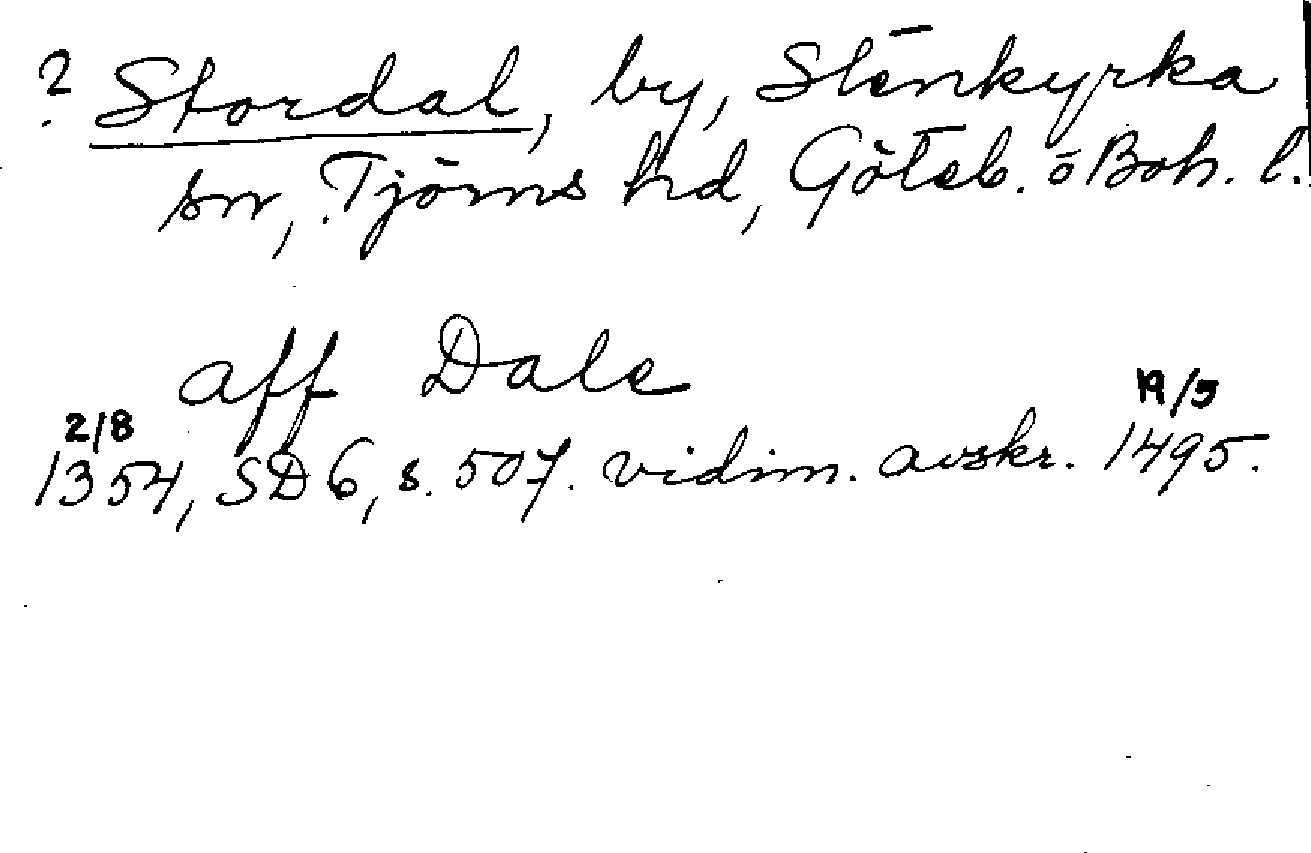 ? Stordal, by, Stenkyrka
sn, Tjörns hd, Göteb. o Boh. l.
aff Dale
2/8 19/5
1354, SD 6, s. 507. vidim. avskr. 1495.